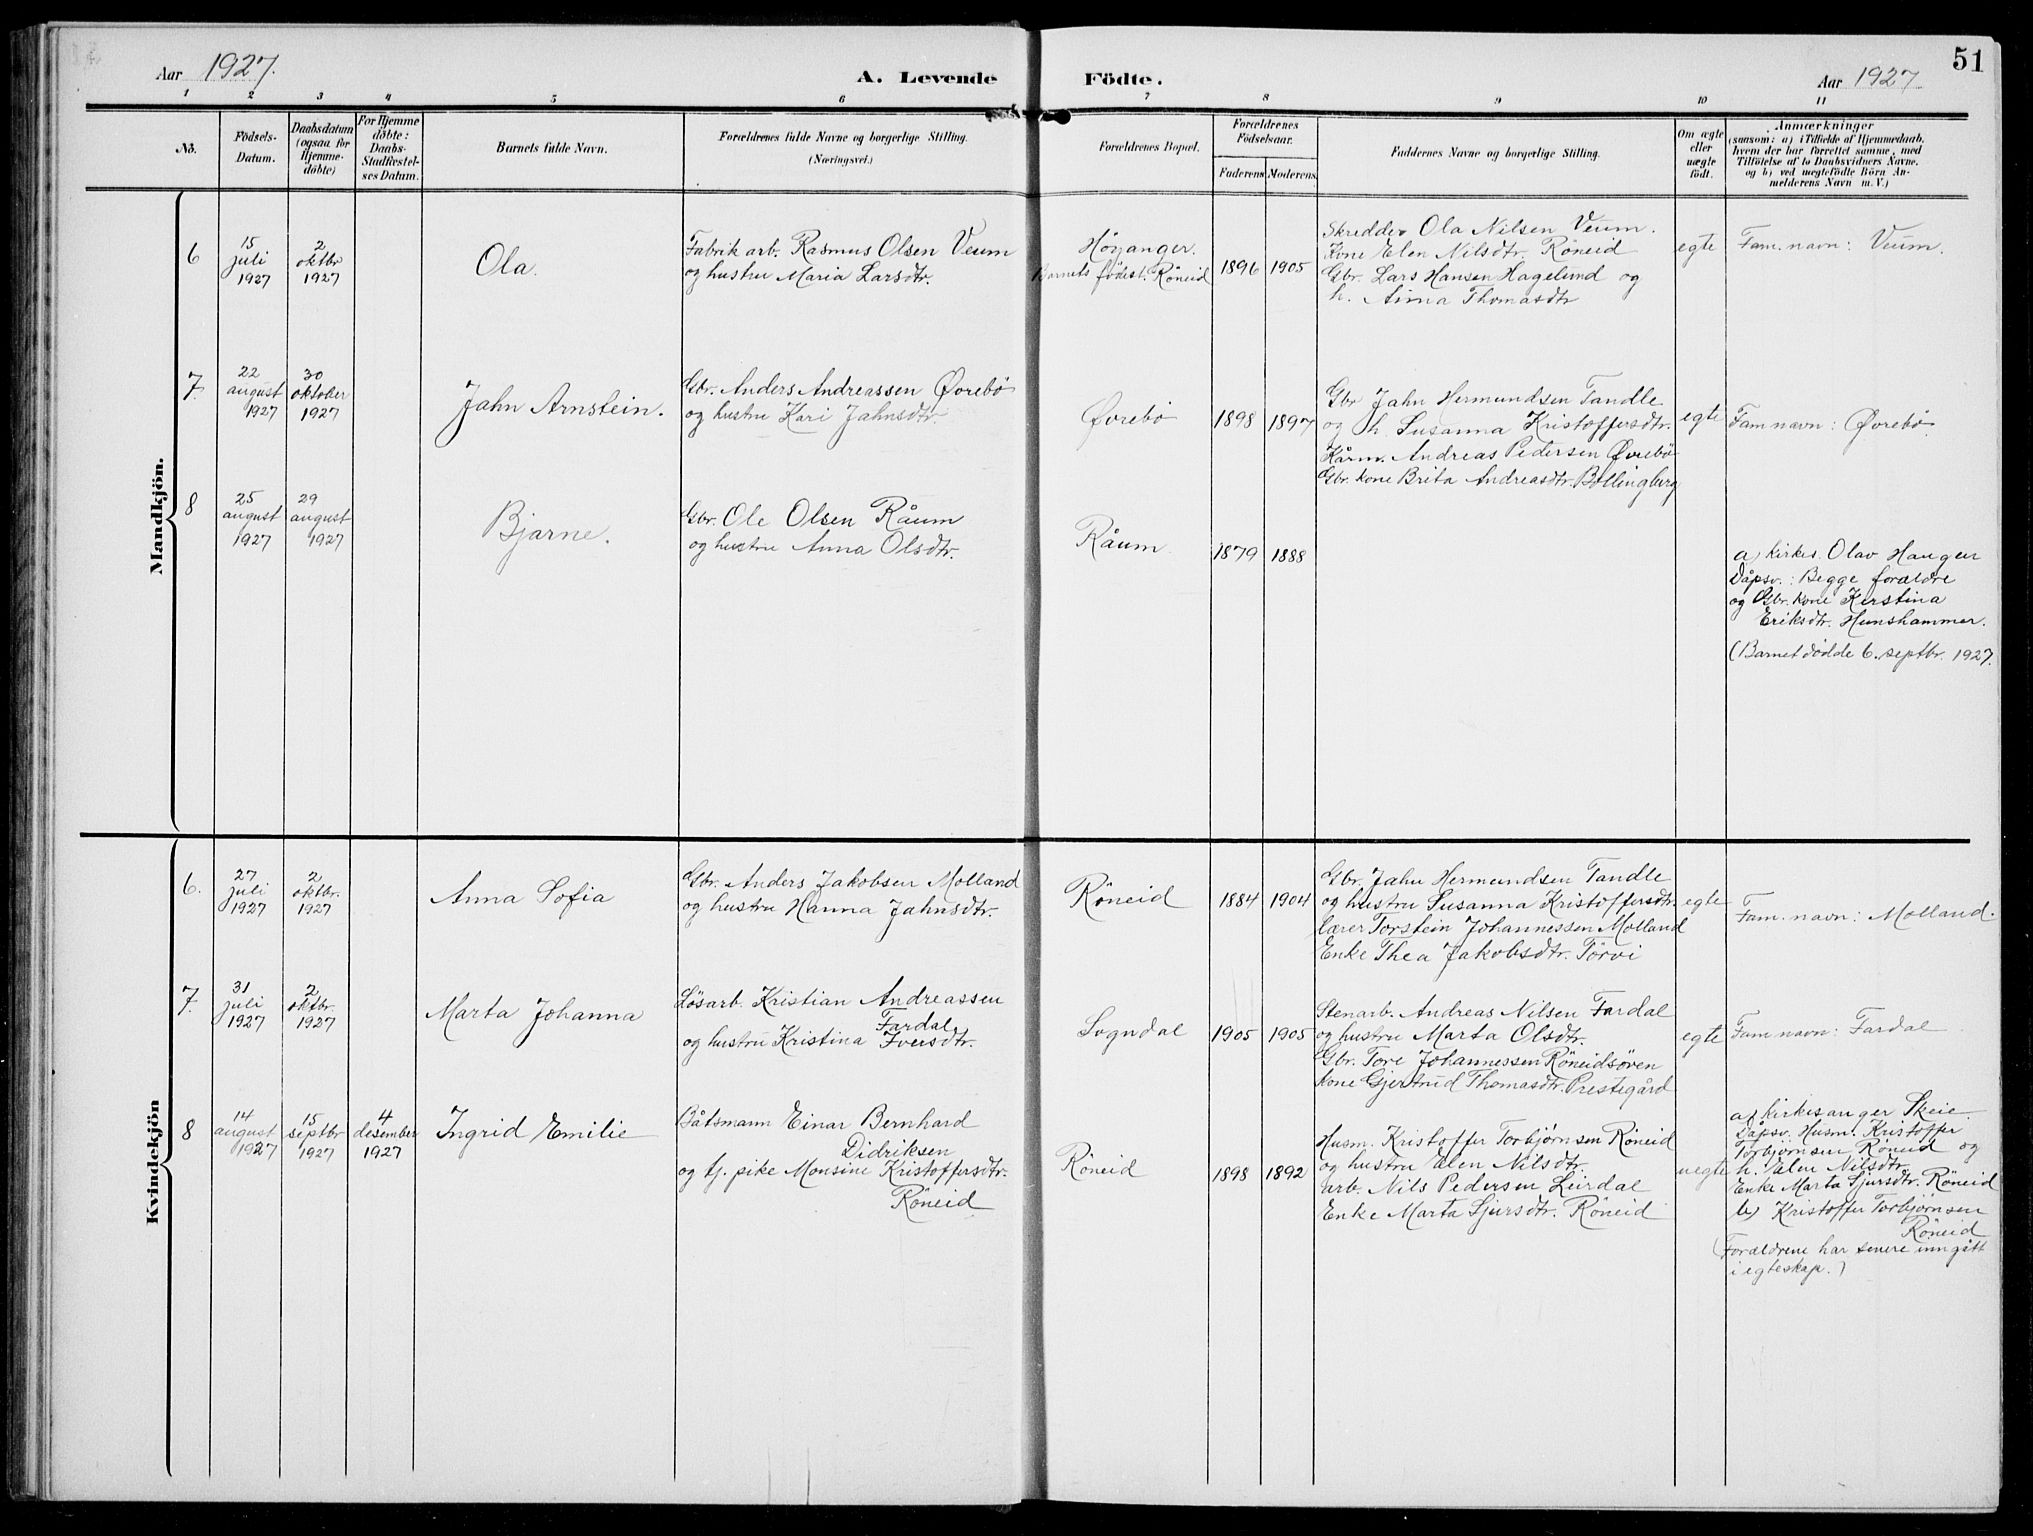 51
Aar 1927.
A. Levende Födte.
Aar 1927
1 2 3 4 5 6 7 8 9 10 11
No.
Födsels-
Datum.
Daabsdatum
(ogsaa for
Hjemme-
döbte)
For Hjemme
döbte:
Daabs-
Stadfæstel-
ses Datum.
Barnets fulde Navn.
Forældrenes fulde Navne og borgerlige Stilling.
(Næringsvei.)
Forældrenes Bopæl.
Forældrenes
Födselsaar.
Faderens Moderens
Faddernes Navne og borgerlige Stilling.
Om ægte
eller
uægte
födt.
Anmærkninger
(saasom: a) i Tilfælde af Hjemmedaab,
hvem der har forrettet samme, med
Tilföielse af to Daabsvidners Navne.
og b) ved uægtefödte Börn An-
melderens Navn m. V.)
Mandkjön.
6
15
juli
1927
2
oktbr
1927
Ola.
Fabrik arb. Rasmus Olsen Veum
og hustru Maria Larsdtr.
Høyanger.
Barnets fødest. Røneid
1896 1905
Skredder Ola Nilsen Veum.
Kone Elen Nilsdtr. Røneid
Gbr. Lars Hansen Hagelund og
h. Anna Thomasdtr
egte
Fam. navn: Veum.
7
22
august
1927
30
oktober
1927
Jahn Arnstein.
Gbr. Anders Andreassen Øvrebø
og hustru Kari Jahnsdtr.
Øvrebø
1898 1897
Gbr Jahn Hermundsen Tandle
og h. Susanna Kristoffersdtr.
Kårm. Andreas Pedersen Øvrebø
Gbr. kone Brita Andreasdtr. Bollingberg
egte
Fam navn: Øvrebø
8
25
august
1927
29
august
1927
Bjarne.
Gbr. Ole Olsen Råum
og hustru Anna Olsdtr.
Råum
1879 1888
a, kirkes. Olav Haugen
Dåpsv.: Begge forældre
og Gbr. kone Kerstina
Eriksdtr. Hunshammer.
(Barnet dødde 6. septbr. 1927.
Kvindekjön
6.
27
juli
1927
2
oktbr.
1927
Anna Sofia
Gbr. Anders Jakobsen Molland
og hustru Hanna Jahnsdtr.
Røneid
1884 1904
Gbr. Jahn Hermundsen Tandle
og hustru Susanna Kristoffersdtr.
lærer Torstein Johannessen Molland
Enke Thea Jakobsdtr. Törvi
egte
Fam. navn: Molland.
7.
31
juli
1927
2
oktbr.
1927
Marta Johanna
Løsarb. Kristian Andreassen
Fardal
og hustru Kristina Iversdtr.
Sogndal
1905 1905
Stenarb. Andreas Nilsen Fardal
og hustru Marta Olsdtr.
Gbr. Tore Johannessen Røneidsøren
kone Gjertrud Thomasdtr Prestegård
egte
Fam navn: Fardal
8
14
august
1927
15
septbr
1927
4
desember
1927
Ingrid Emilie
Båtsmann Einar Bernhard
Didriksen
og tj. pike Monsine Kristoffersdtr.
Røneid
Røneid
1898 1892
Husm. Kristoffer Torbjørnsen Røneid
og hustru Elen Nilsdtr.
arb. Nils Pedersen Leirdal
Enke Marta Sjursdtr. Røneid
uegte
a, kirkesanger Skeie.
Dåpsv. Husm. Kristoffer
Torbjørnsen Røneid og
h. Elen Nilsdtr.
Enke Marta Sjursdtr. Røneid
b) Kristoffer Torbjørnsen
Røneid
(Forældrene har senere inngått
i egteskap.)